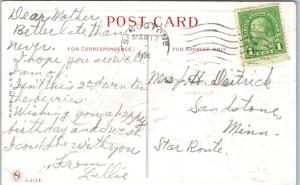 POST CARD
Dear Mother
Better late than
never.
FOR CORRESPONDENCE
FOR ADDRESS ONLY
MAR 17
1
I hope you are well
Isn't this 2nd winter
Wishing you a happy
birthday and wish
I could be with you
From
Lillie
Mrs J. H. Deitrick
Sandstone
Minn.
Star Route.
MADE IN U.S.A.